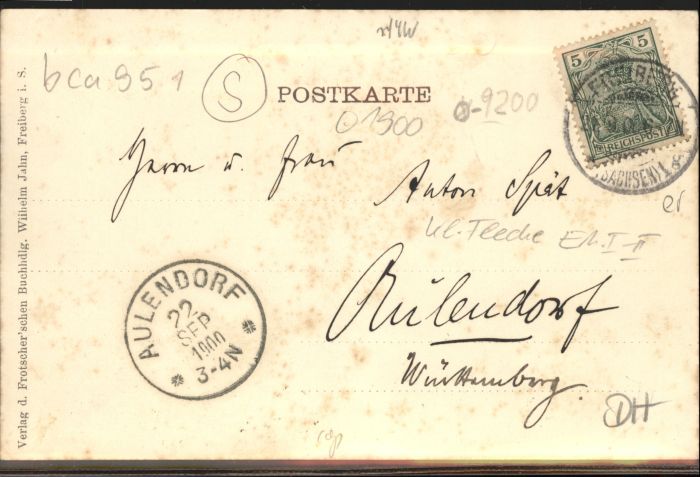 bca 951
S
POSTKARTE
01900
9200
5 5
REICHSPOST
(SACHSEN) 1.
Herrn u. Frau
Anton Spät
kl. Flecke Er. I-II
Aulendorf
Württemberg.
AULENDORF
22
SEP
1900
3-4N
DH
Verlag d. Frotscher'schen Buchhdlg. Wilhelm Jahn, Freiberg i. S.